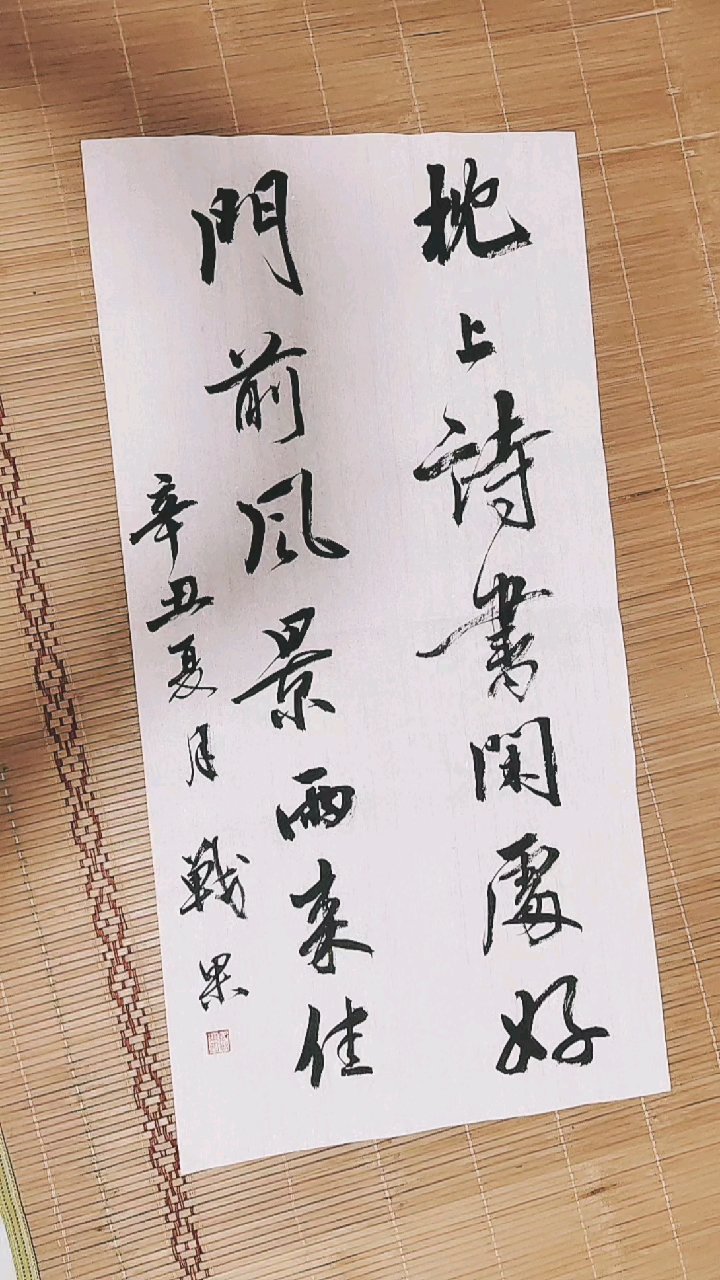 枕上詩書閑處好
門前風景雨来佳
辛丑夏月 戰果